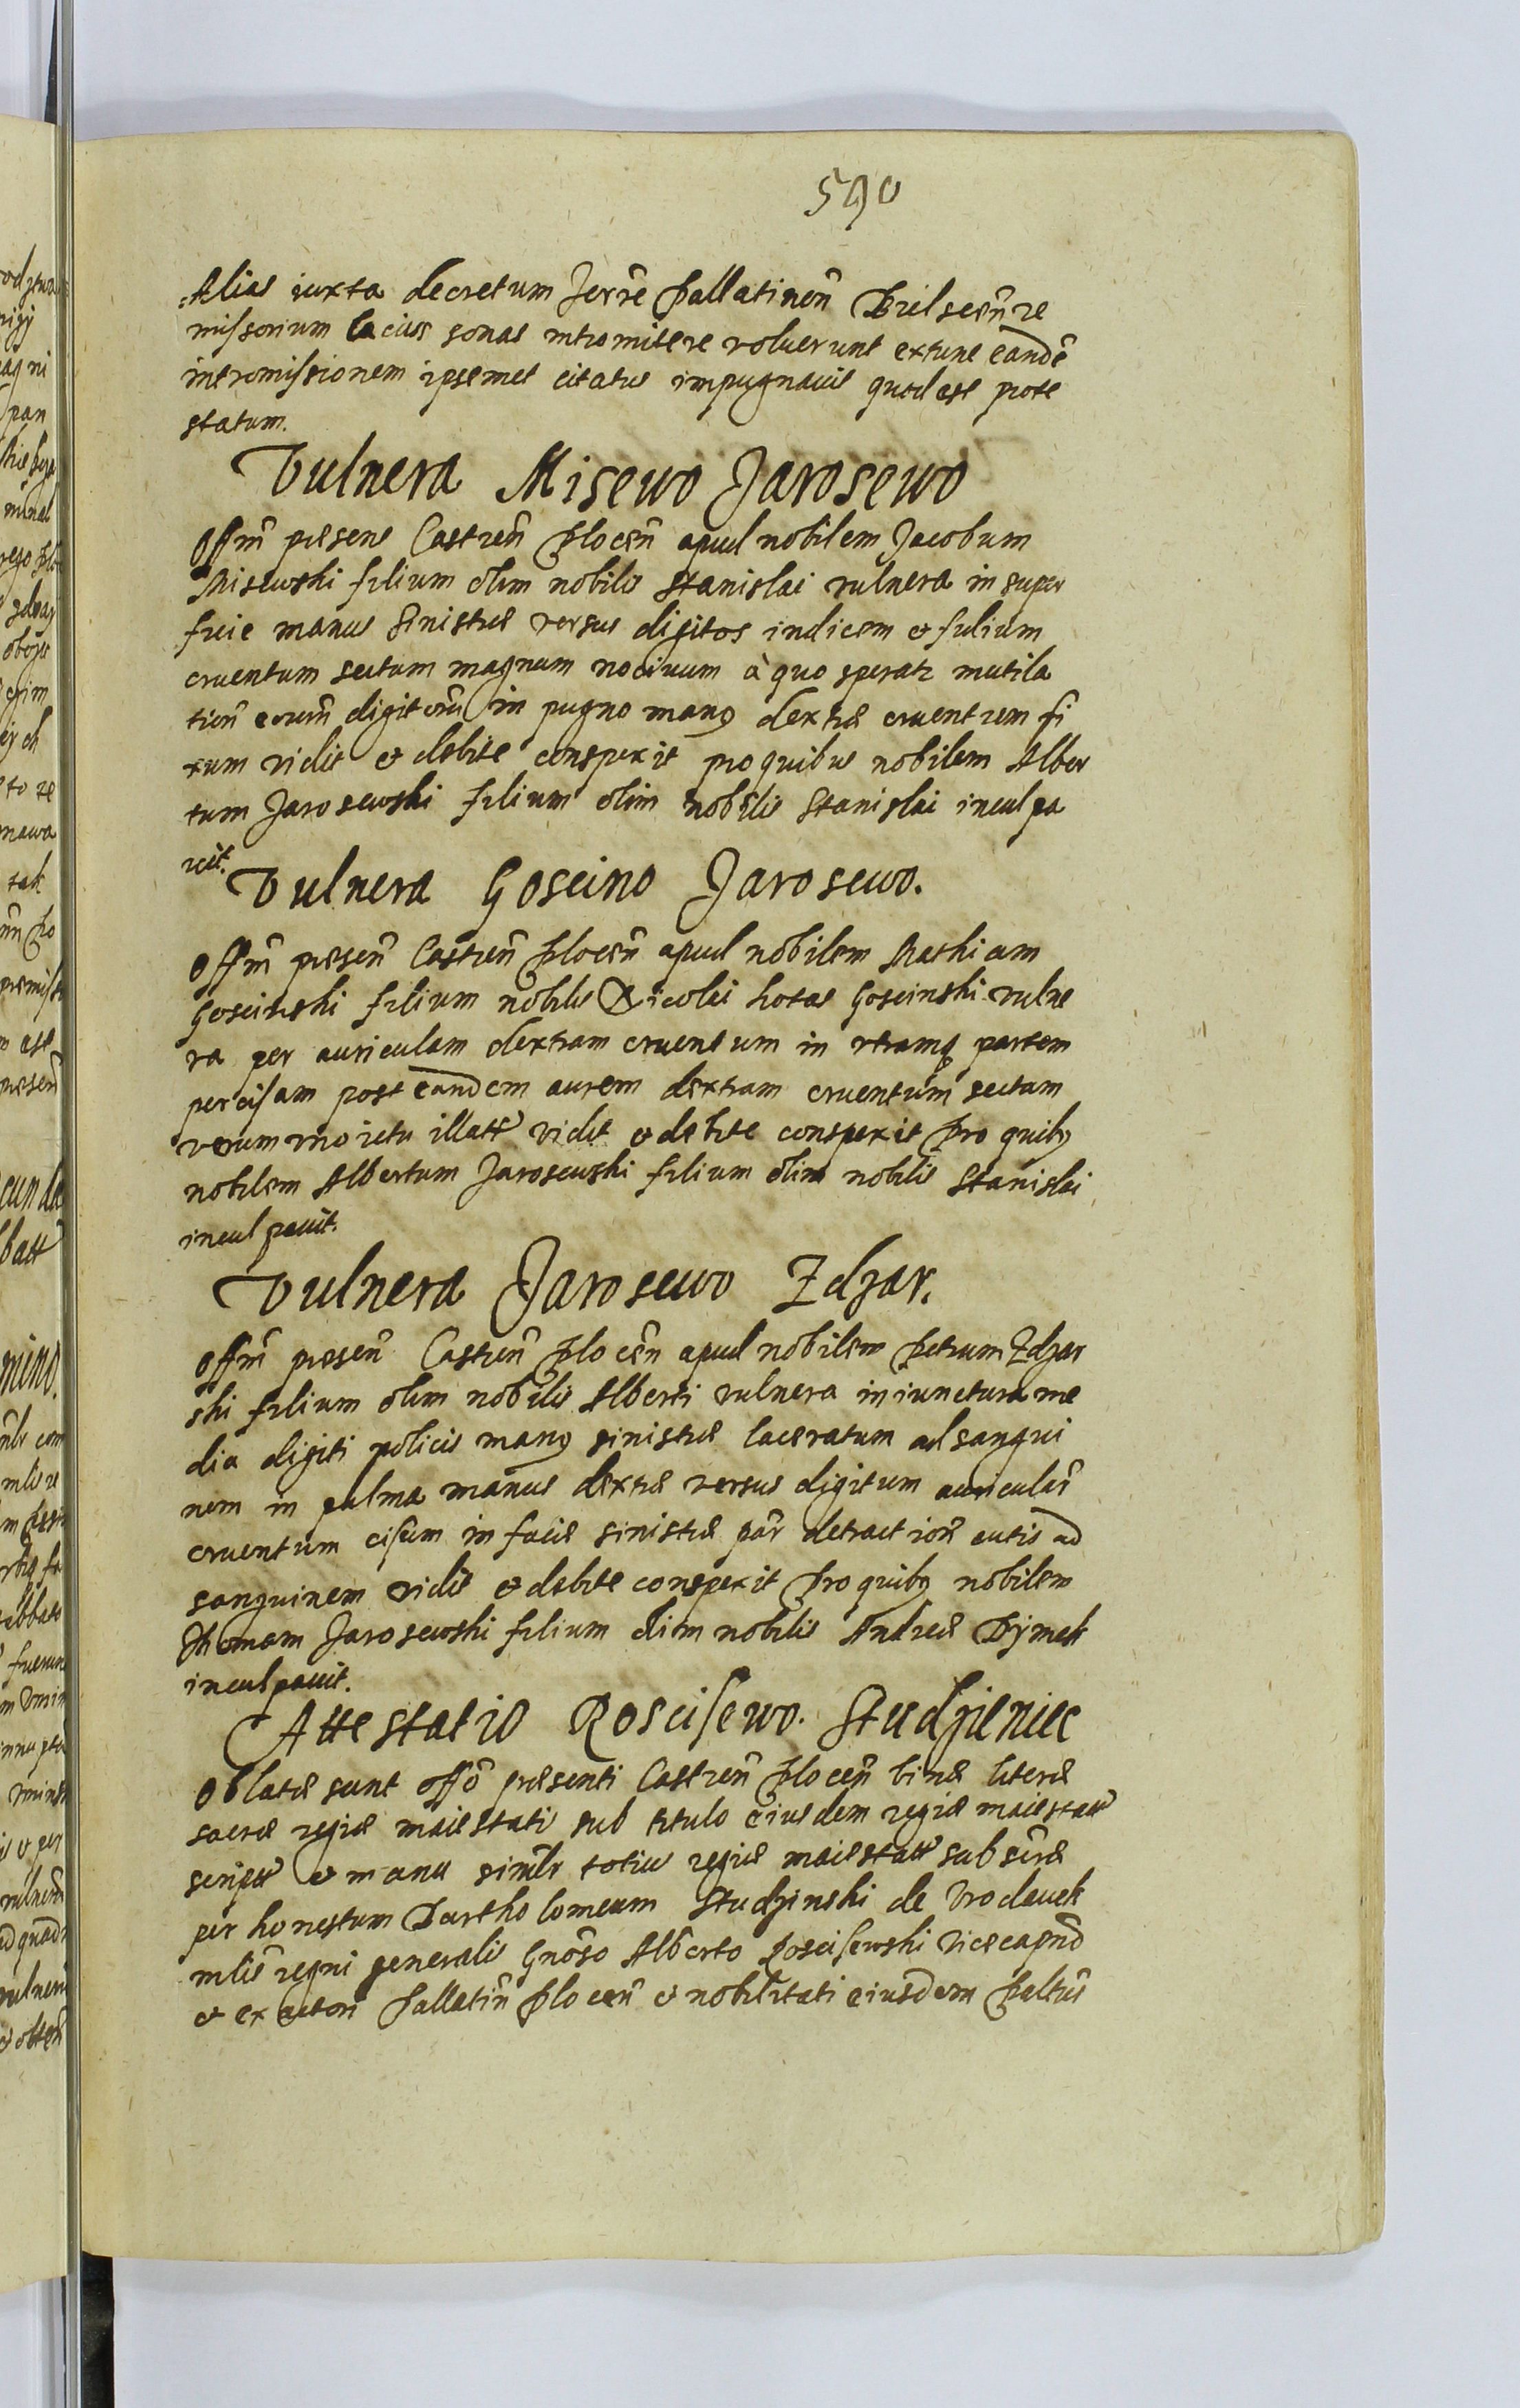 590
Alias iuxta decretum Terrē Pallatinen̄ Bielscen̄ re
missorium lacius sonas intromitere voluerunt extunc eandē
intromissionem ipsemet citatus impugnauit quod est prote
statum.
Vulnera Misewo Jarosewo
Offm̄ præsens Castren̄ Plocen̄ apud nobilem Jacobum
Misewski filium olim nobilis Stanislai vulnera in super
ficie manus sinistræ versus digitos indicem et
cruentum sectum magnum nociuum à quo speratr mutila
tion̄ eorum̄ digitorum̄ in pugno manus dextræ cruentum fi
xum vidit et debite conspexit pro quibus nobilem Alber
tum Jarosewski filium olim nobilis Stanislai inculpa
uit.
Vulnera Goscino Jarosewo.
Offm̄ præsen̄ Castren̄ Plocen̄ apud nobilem Mathiam
Goscinski filium nobilis Nicolai Kotas Goscinski vulne
ra per auriculam dextram cruentum in vtramq partem
percisam post eandem aurem dextram cruentum sectum
verum vno ictu illatt vidit et debite conspexit Pro quibus
nobilem Albertum Jarosewski filium olim nobilis Stanislai
inculpauit.
Vulnera Jarosewo Zdzar.
Offm̄ præsen̄ Castren̄ Plocen̄ apud nobilem Petrum Zdzar
ski filium olim nobilis Alberti vulnera in iunctura me
dia digiti policis manus sinistræ laceratum ad sangui
nem in palma manus dextræ versus digitum auricular̄
cruentum cisum in facie sinistræ par̄ detraction̄ cutis ad
sanguinem vidit et debite conspexit Pro quibus nobilem
Thomam Jarosewski filium olim nobilis Andreæ Dymek
inculpauit.
Attestatio Roscisewo. Studzieniec
Oblatæ sunt offō præsenti Castren̄ Plocen̄ binæ literæ
sacræ regiæ maiestatis sub titulo eiusdem regiæ maiestatt
scriptt et manu simlr totius regiæ maiestatt subscræ
per honestum Bartholomeum Studzinski de
mlis regni generalis Gnōso Alberto Roscisewski Vicecapnō
et exactori Pallatin̄ Plocen̄ et nobilitati eiusdem Paltūs